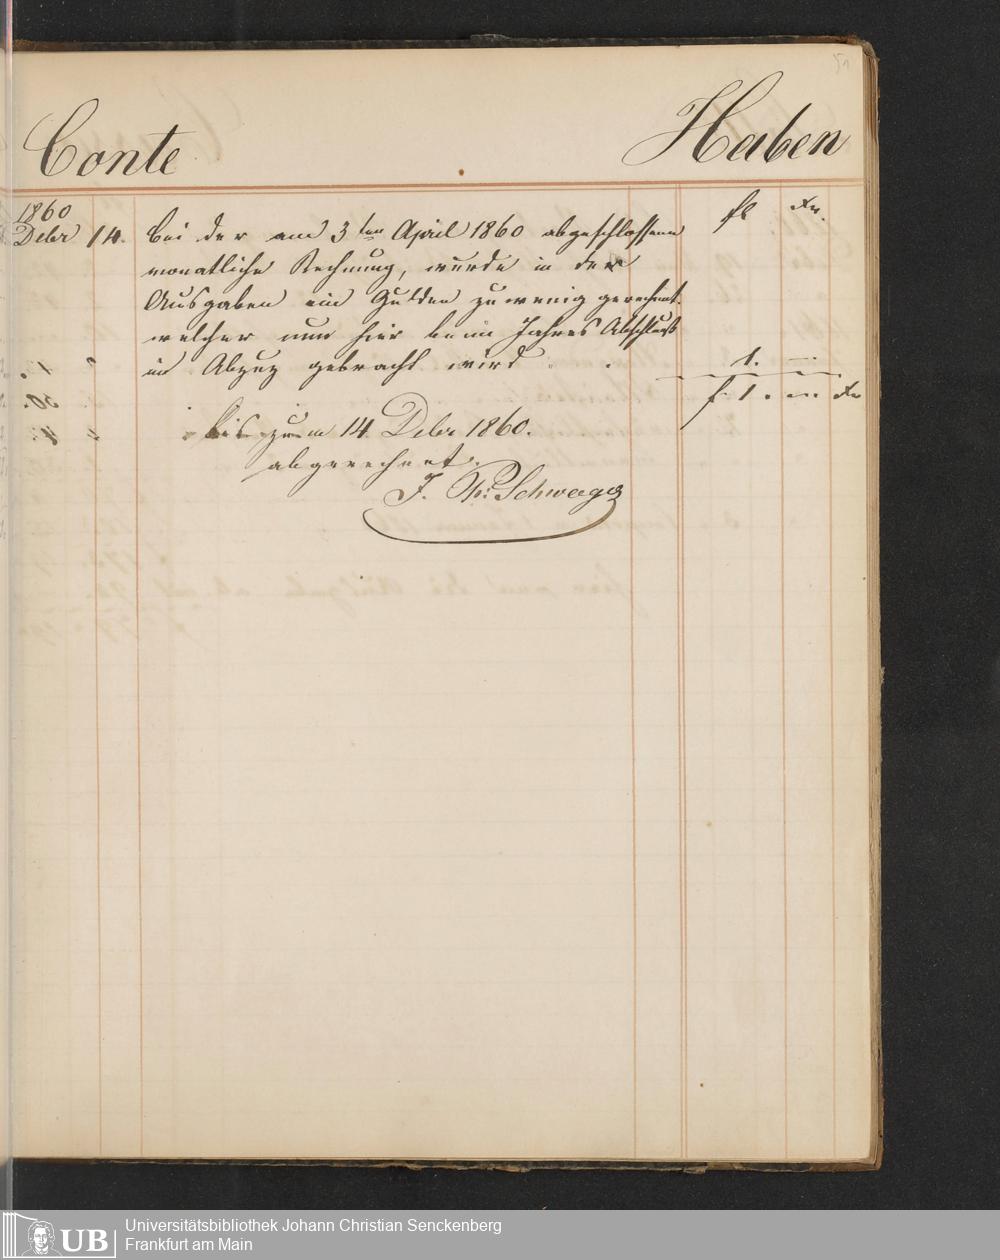 51
Conte Haben
1860 fl xr.
Debr 14. bei der am 3ten April 1860 abgeschlossene
monatliche Rechnung, wurde in der
Ausgaben ein Gulden zu wenig gerechnet.
welcher nun hier beim Jahres Abschluß
in Abzug gebracht wird . . 1. —
f. 1. — xr
bis zum 14. Debr 1860.
abgerechnet.
J. Ph: Schwager
Universitätsbibliothek Johann Christian Senckenberg
Frankfurt am Main
UB